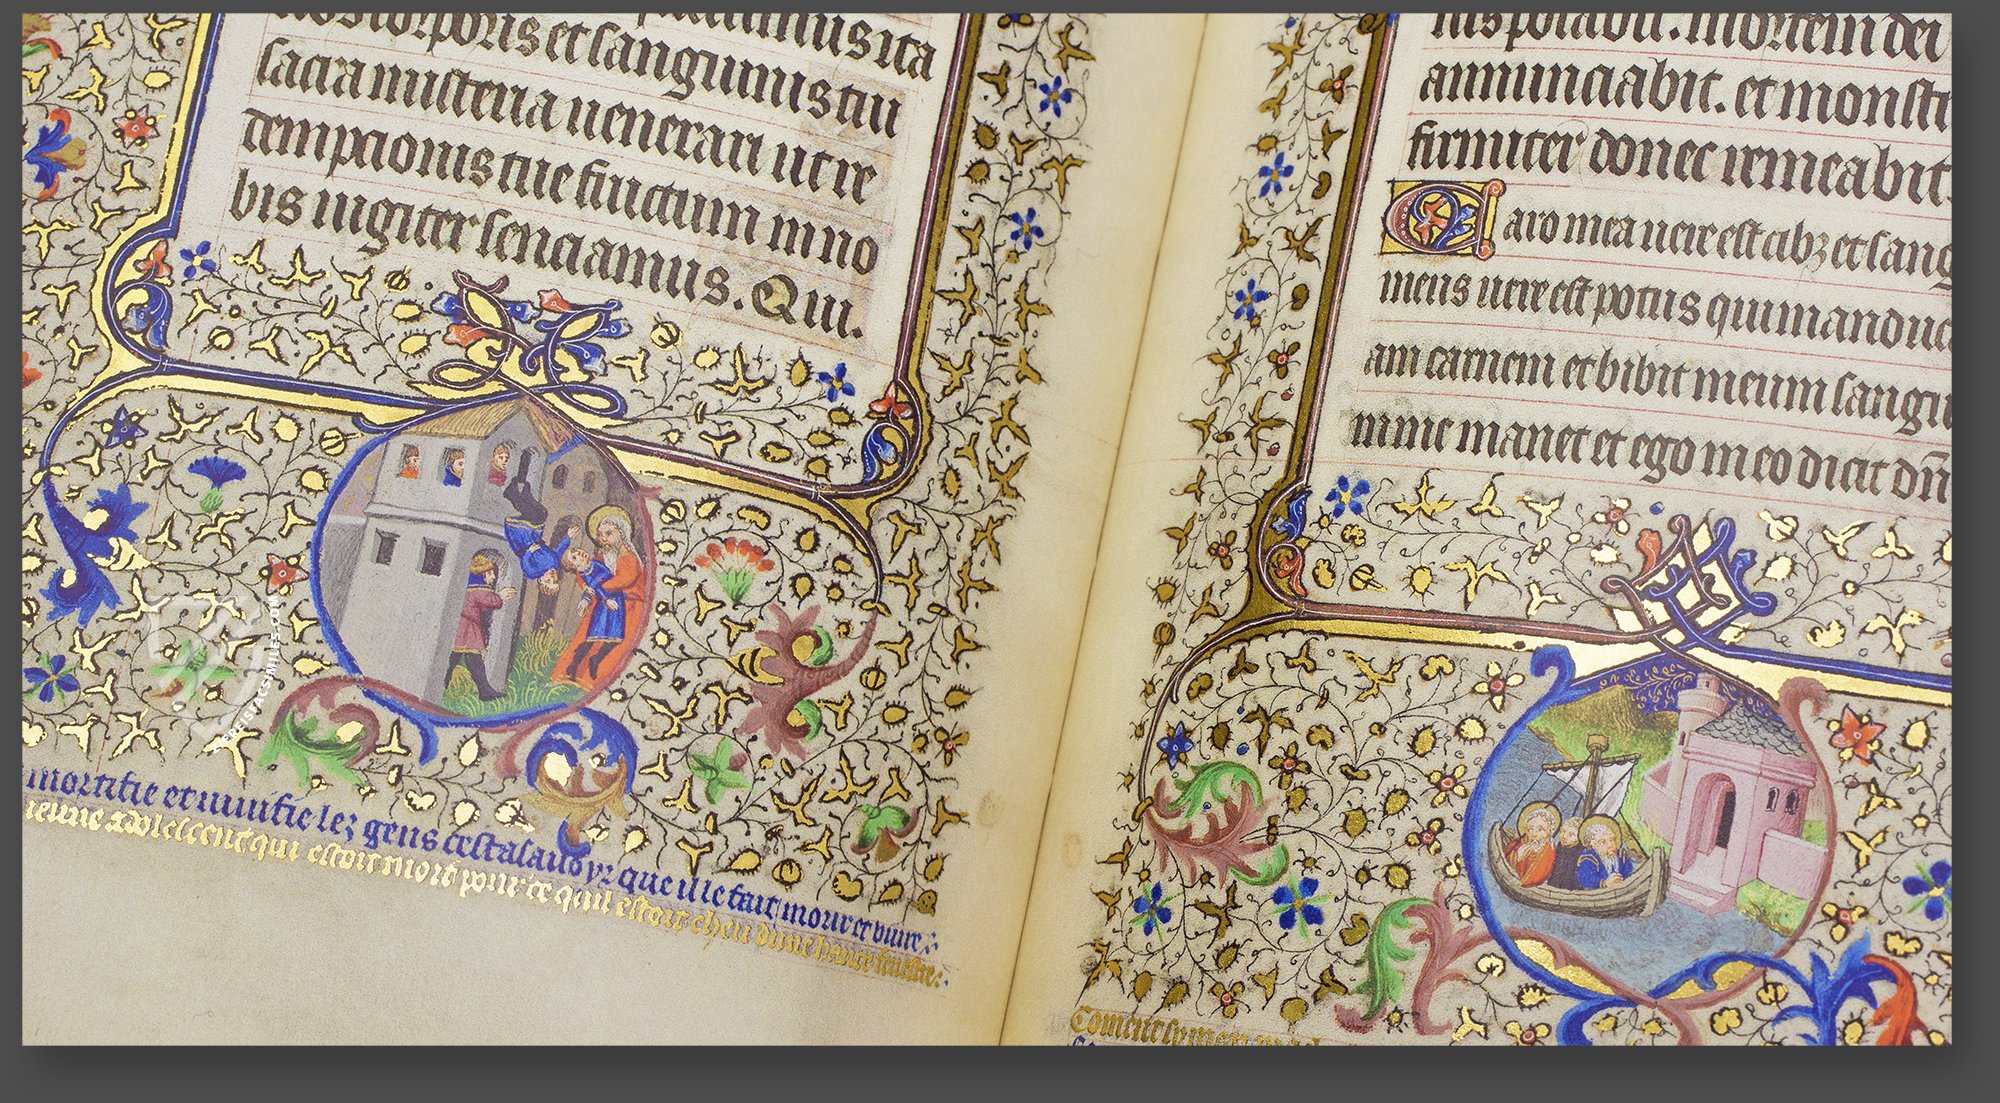 corporis et sanguinis tui
sacra misteria uenerari ut re
dempcionis tue fructum in no
bis iugiter senciamus. Qui.
mortifie et viuifie lez gens cest a sauoyr que il le fait mourir et viure
ieune adolescent qui estoit mort pour ce quil estoit cheu dune haute fenestre
mortem dei
annunciabit. et monst
firmiter donec uenieabit.
Caro mea uere est cibz et sang
meus uere est potus qui manduc
am carnem et bibit meum sangu
in me manet et ego in eo dicit dn̄
Coment
FACSIMILES.COM